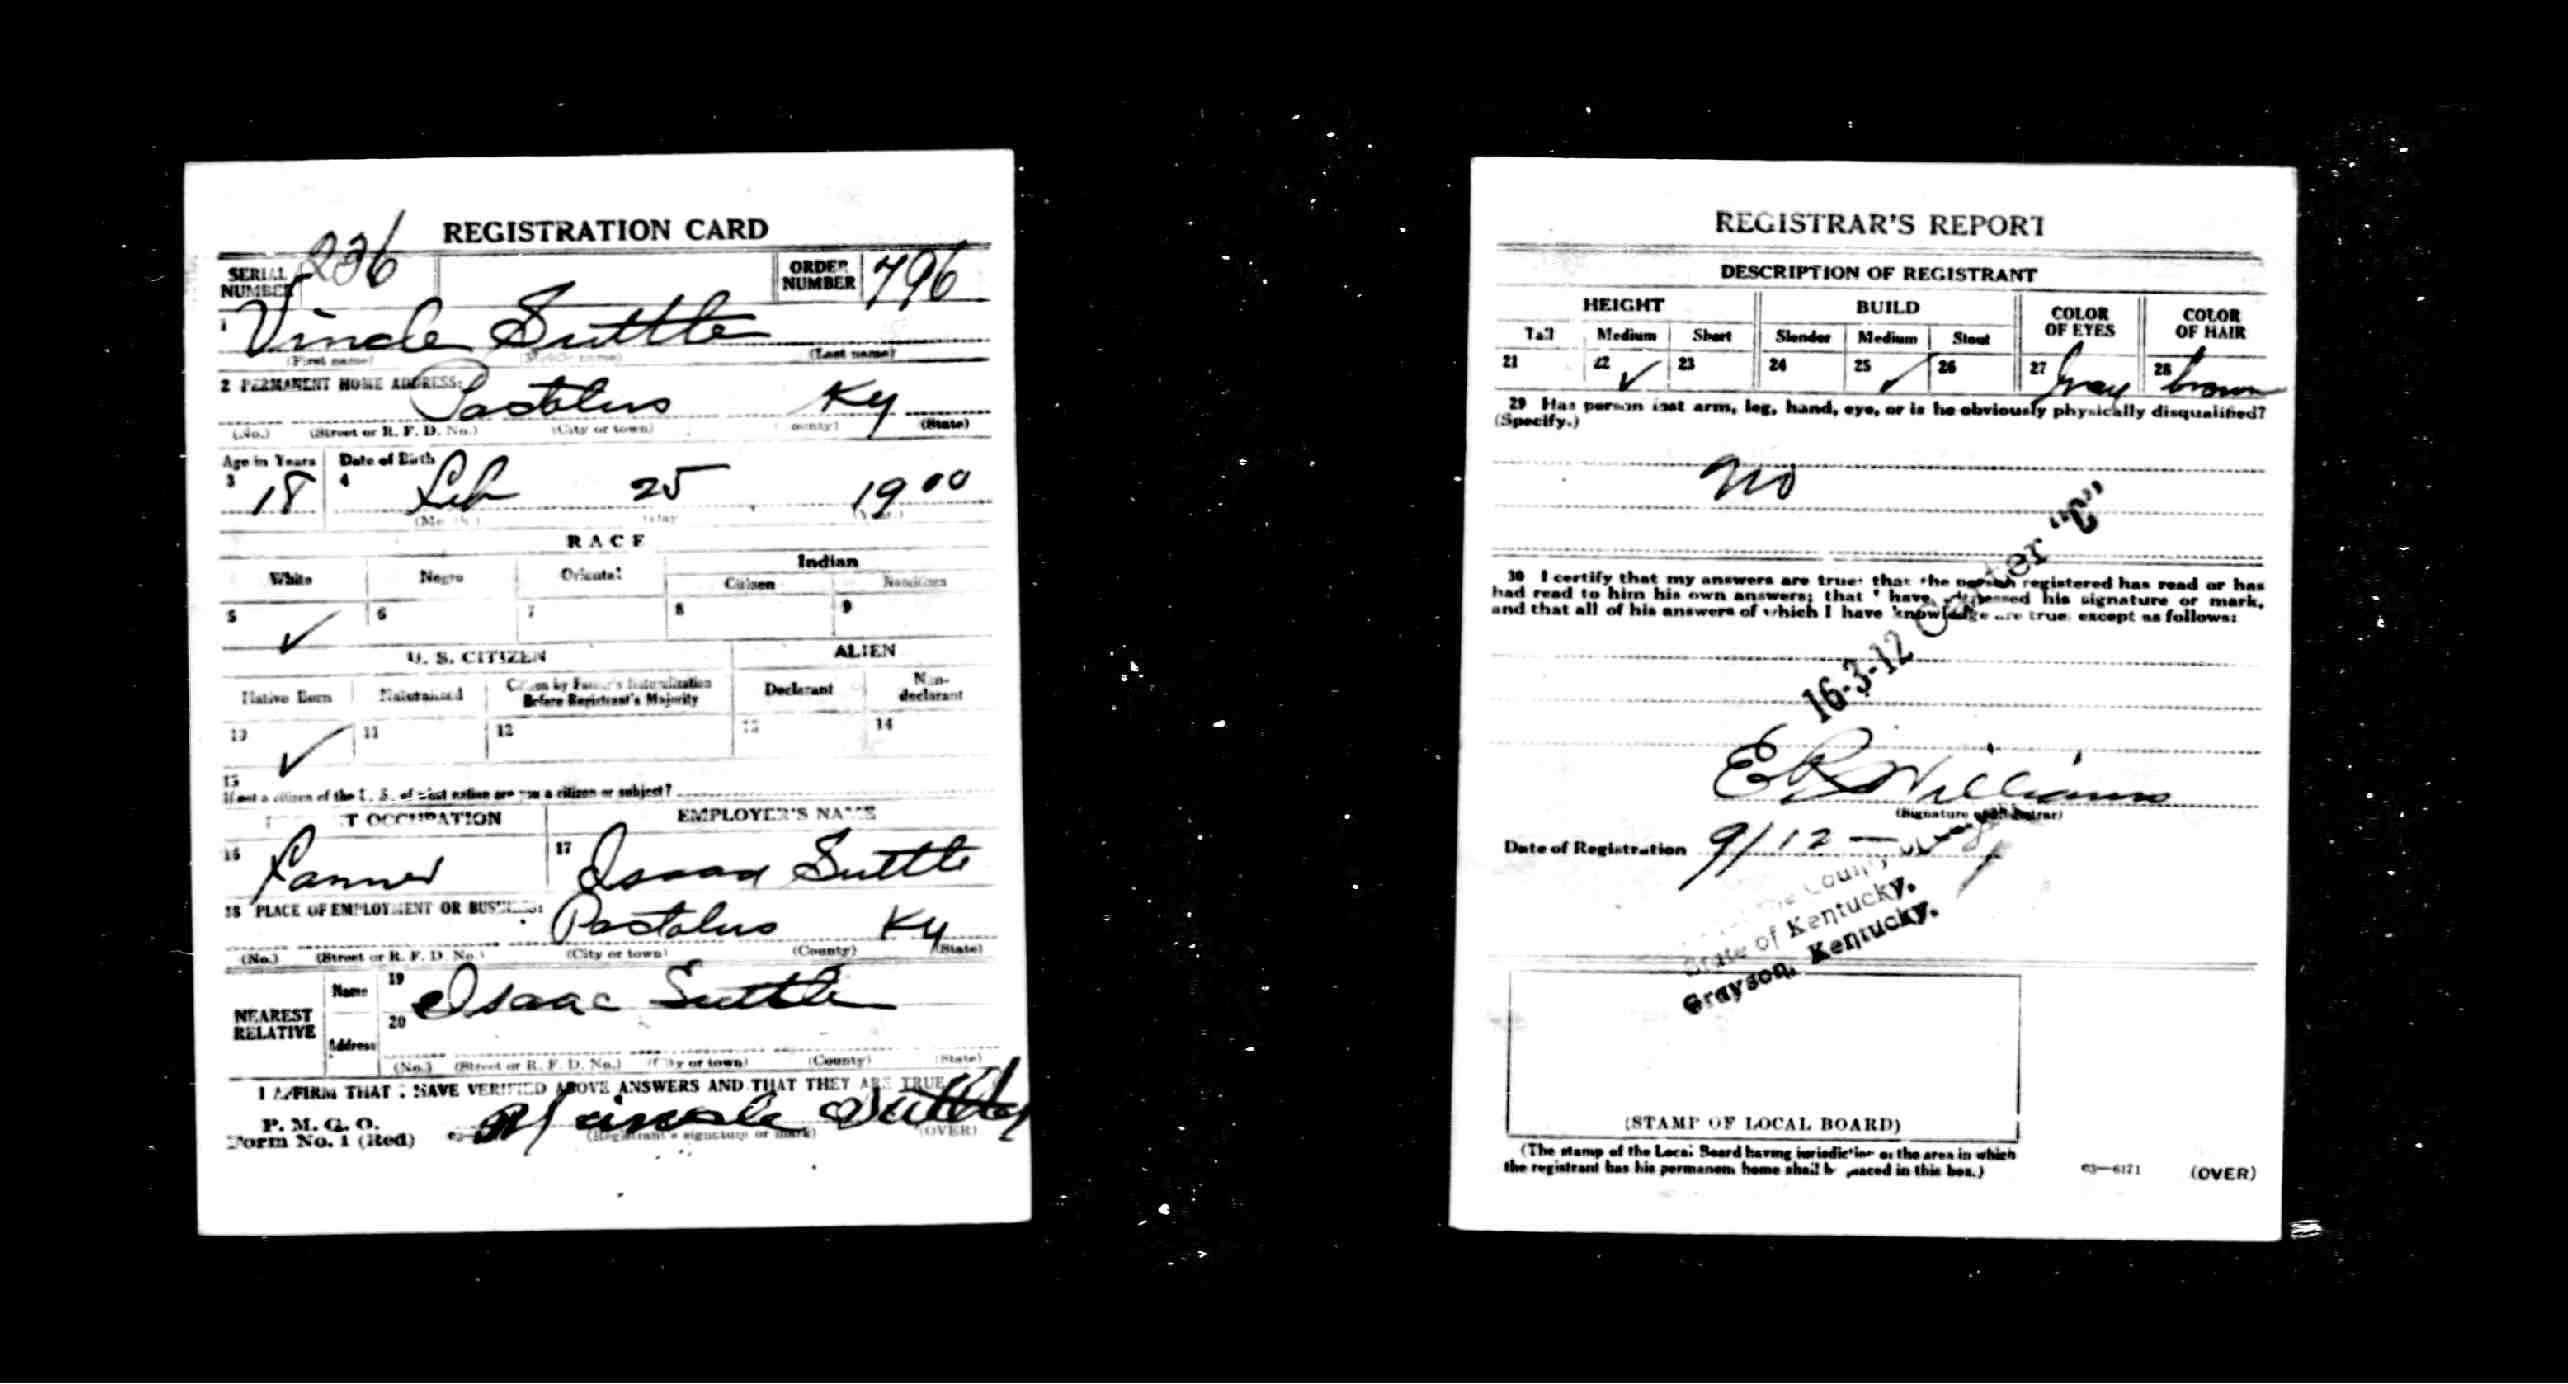 REGISTRATION CARD
SERIAL NUMBER 236 ORDER NUMBER 796
1 Vincle Suttle
(First name) (Middle name) (Last name)
2 PERMANENT HOME ADDRESS:
Pactolus Ky
(No.) (Street or R. F. D. No.) (City or town) (County) (State)
Age in Years Date of Birth
3 18 4 Feb 25 1900
(Month) (Day) (Year)
RACE
White Negro Oriental Indian
Citizen Noncitizen
5 ✓ 6 7 8 9
U. S. CITIZEN ALIEN
Native Born Naturalized Citizen by Father's Naturalization Before Registrant's Majority Declarant Non-declarant
10 ✓ 11 12 13 14
15
If not a citizen of the U. S. of what nation are you a citizen or subject?
T OCCUPATION EMPLOYER'S NAME
16 Farmer 17 Isaac Suttle
18 PLACE OF EMPLOYMENT OR BUSINESS:
Pactolus Ky
(No.) (Street or R. F. D. No.) (City or town) (County) (State)
NEAREST RELATIVE Name 19 Isaac Suttle
Address 20
(No.) (Street or R. F. D. No.) (City or town) (County) (State)
I AFFIRM THAT I HAVE VERIFIED ABOVE ANSWERS AND THAT THEY ARE TRUE
P. M. G. O.
Form No. 1 (Red) Suttle
(Registrant's signature or mark) (OVER)
REGISTRAR'S REPORT
DESCRIPTION OF REGISTRANT
HEIGHT BUILD COLOR OF EYES COLOR OF HAIR
Tall Medium Short Slender Medium Stout
21 22 ✓ 23 24 25 ✓ 26 27 Gray 28 brown
29 Has person lost arm, leg, hand, eye, or is he obviously physically disqualified?
(Specify.)
No
30 I certify that my answers are true; that the person registered has read or has
had read to him his own answers; that I have witnessed his signature or mark,
and that all of his answers of which I have knowledge are true, except as follows:
16-3-12 Carter "C"
E R Williams
(Signature of Registrar)
Date of Registration 9/12
County
State of Kentucky.
Grayson, Kentucky.
(STAMP OF LOCAL BOARD)
(The stamp of the Local Board having jurisdiction of the area in which
the registrant has his permanent home shall be placed in this box.)
03—6171 (OVER)